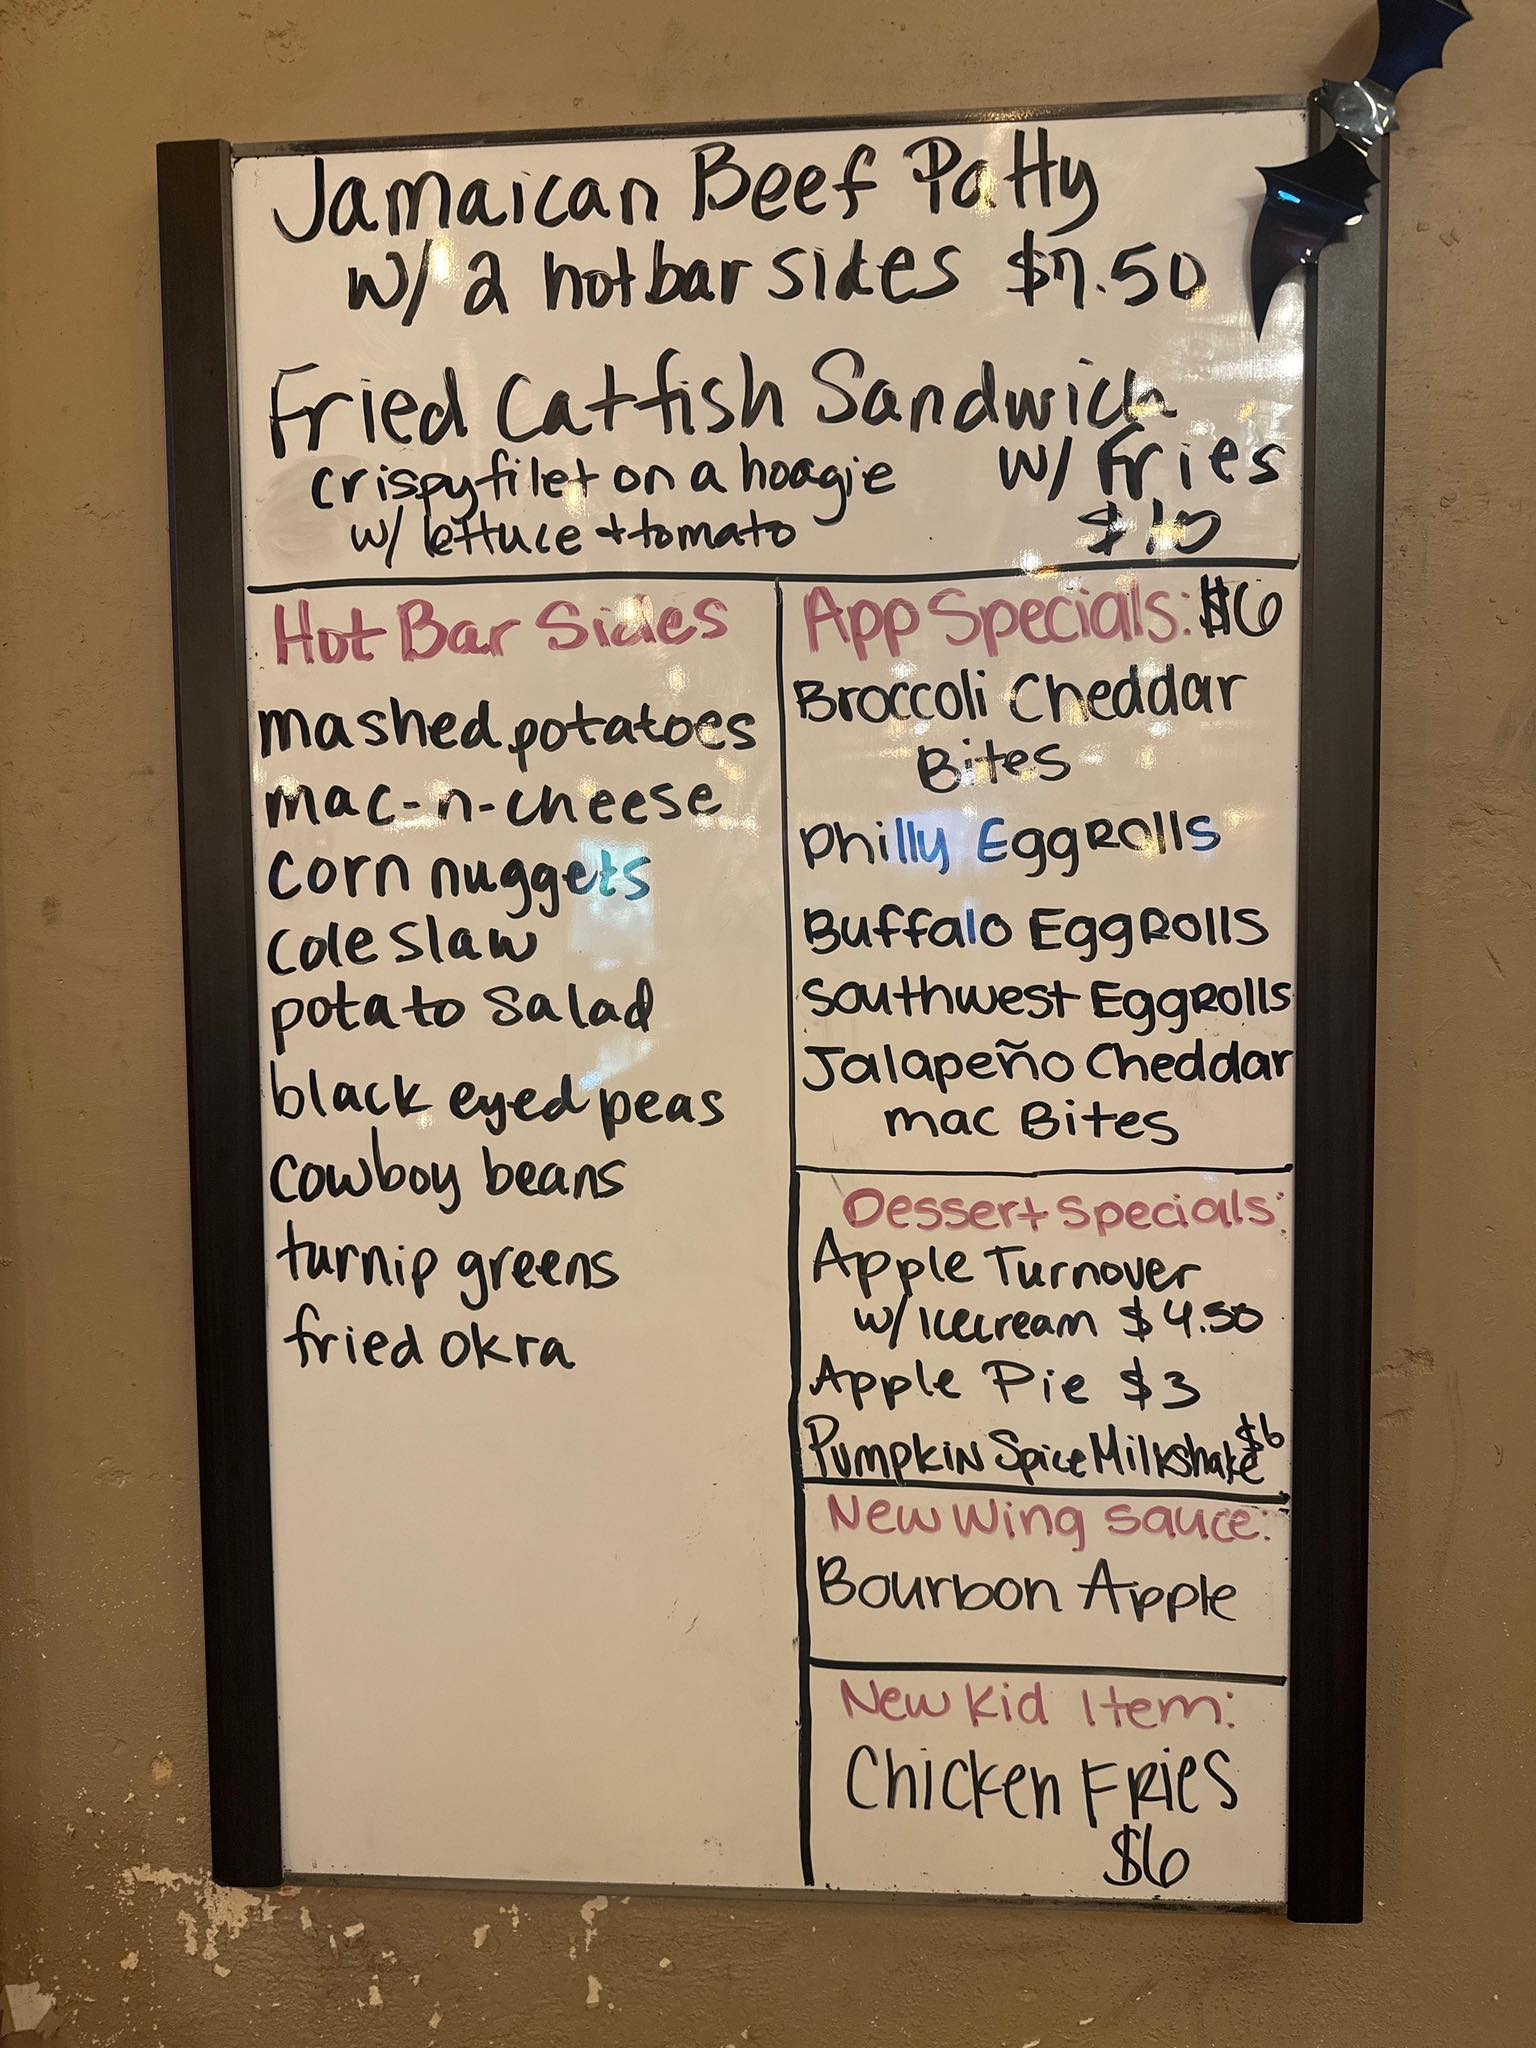 Jamaican Beef Patty
w/ 2 hot bar sides $7.50
Fried Catfish Sandwich
crispy filet on a hoagie w/ Fries
w/ lettuce + tomato $10
Hot Bar Sides
mashed potatoes
mac-n-cheese
corn nuggets
cole slaw
potato salad
black eyed peas
cowboy beans
turnip greens
fried okra
App Specials: $6
Broccoli Cheddar
Bites
Philly EggRolls
Buffalo EggRolls
Southwest EggRolls
Jalapeño Cheddar
mac Bites
Dessert Specials:
Apple Turnover
w/ Icecream $4.50
Apple Pie $3
Pumpkin Spice Milkshake $6
New Wing Sauce:
Bourbon Apple
New Kid Item:
Chicken Fries
$6